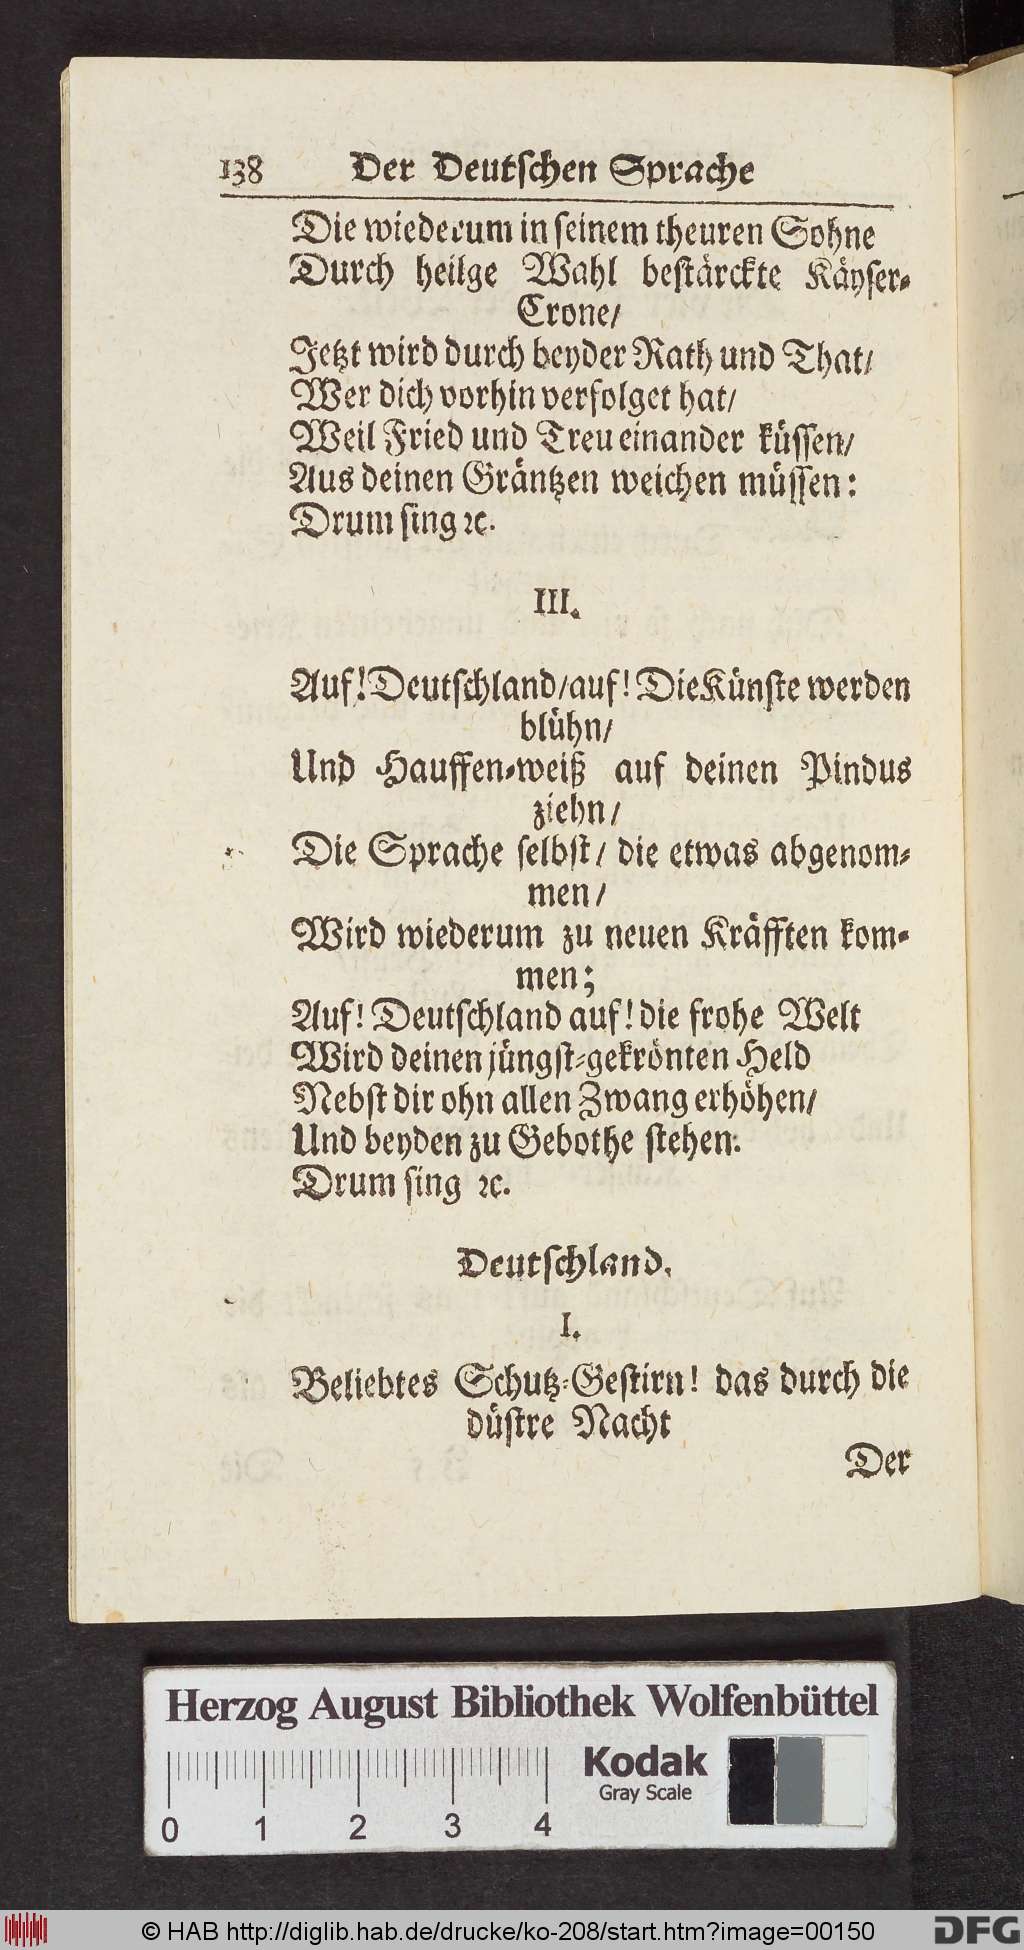 138 Der Deutschen Sprache
Die wiederum in seinem theuren Sohne
Durch heilge Wahl bestärckte Käyser-
Crone/
Jetzt wird durch beyder Rath und That/
Wer dich vorhin verfolget hat/
Weil Fried und Treu einander küssen/
Aus deinen Gräntzen weichen müssen:
Drum sing ꝛc.
III.
Auf! Deutschland/auf! Die Künste werden
blühn/
Und Hauffen-weiß auf deinen Pindus
ziehn/
Die Sprache selbst/ die etwas abgenom-
men/
Wird wiederum zu neuen Kräfften kom-
men;
Auf! Deutschland auf! die frohe Welt
Wird deinen jüngst-gekrönten Held
Nebst dir ohn allen Zwang erhöhen/
Und beyden zu Gebothe stehen.
Drum sing ꝛc.
Deutschland.
I.
Beliebtes Schutz-Gestirn! das durch die
düstre Nacht
Der
Herzog August Bibliothek Wolfenbüttel
Kodak
Gray Scale
0 1 2 3 4
© HAB http://diglib.hab.de/drucke/ko-208/start.htm?image=00150
DFG